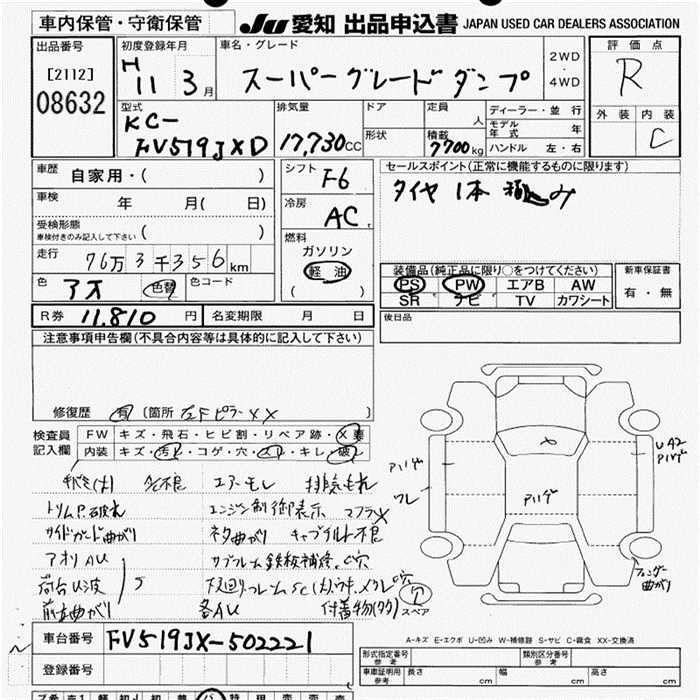 車内保管・守衛保管 JU 愛知 出品申込書 JAPAN USED CAR DEALERS ASSOCIATION
出品番号
[2112]
08632
初度登録年月
H 11 3月
車名・グレード
スーパーグレードダンプ
2WD
・
4WD
評価点
R
外装 内装
C
型式
KC-
FV519JXD
排気量
17,730cc
ドア
形状
定員
人
積載
7700kg
ディーラー・並行
モデル年式 年
ハンドル 左・右
車歴
自家用・( )
車検
年 月( 日)
受検形態
車検付きのみ記入して下さい ( )
走行
76万3千356km
色
色替
色コード
シフト
F6
冷房
AC
燃料
ガソリン
軽油
( )
セールスポイント(正常に機能するものに限ります)
タイヤ1本積み
装備品(純正品に限り○をつけてください)
PS PW エアB AW
SR ナビ TV カワシート
新車保証書
有・無
R券 11,810 円
名変期限 月 日
後日品
注意事項申告欄(不具合内容等は具体的に記入して下さい)
修復歴 有(箇所 左FピラーXX )
検査員
記入欄
FW キズ・飛石・ヒビ割・リペア跡・X要
内装 キズ・汚れ・コゲ・穴・スレ・キレ・破レ
エアーモレ 排気もれ
トリムP.破れ エンジン制御表示 マフラX
サイドガード曲がり ネタ曲がり キャブチルト不良
アオリAU サブフレーム鉄板補修、穴
荷台U波
前立曲がり 各AU 付着物(多)
穴
スペア
アハゲ
ワレ
アハゲ
U42
アハゲ
フェンダー
曲がり
A-キズ E-エクボ U-凹み W-補修跡 S-サビ C-腐食 XX-交換済
車台番号 FV519JX-502221
登録番号
形式指定番号
参考
類別区分番号
参考
車庫証明用
参考
長さ cm 幅 cm 高さ cm